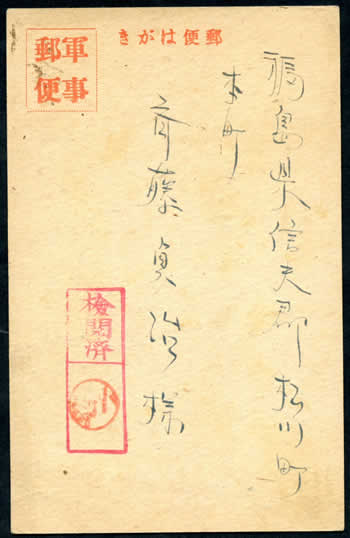 きがは便郵
軍事
郵便
福島県信夫郡松川町
本町
斉藤貞治様
検閲済